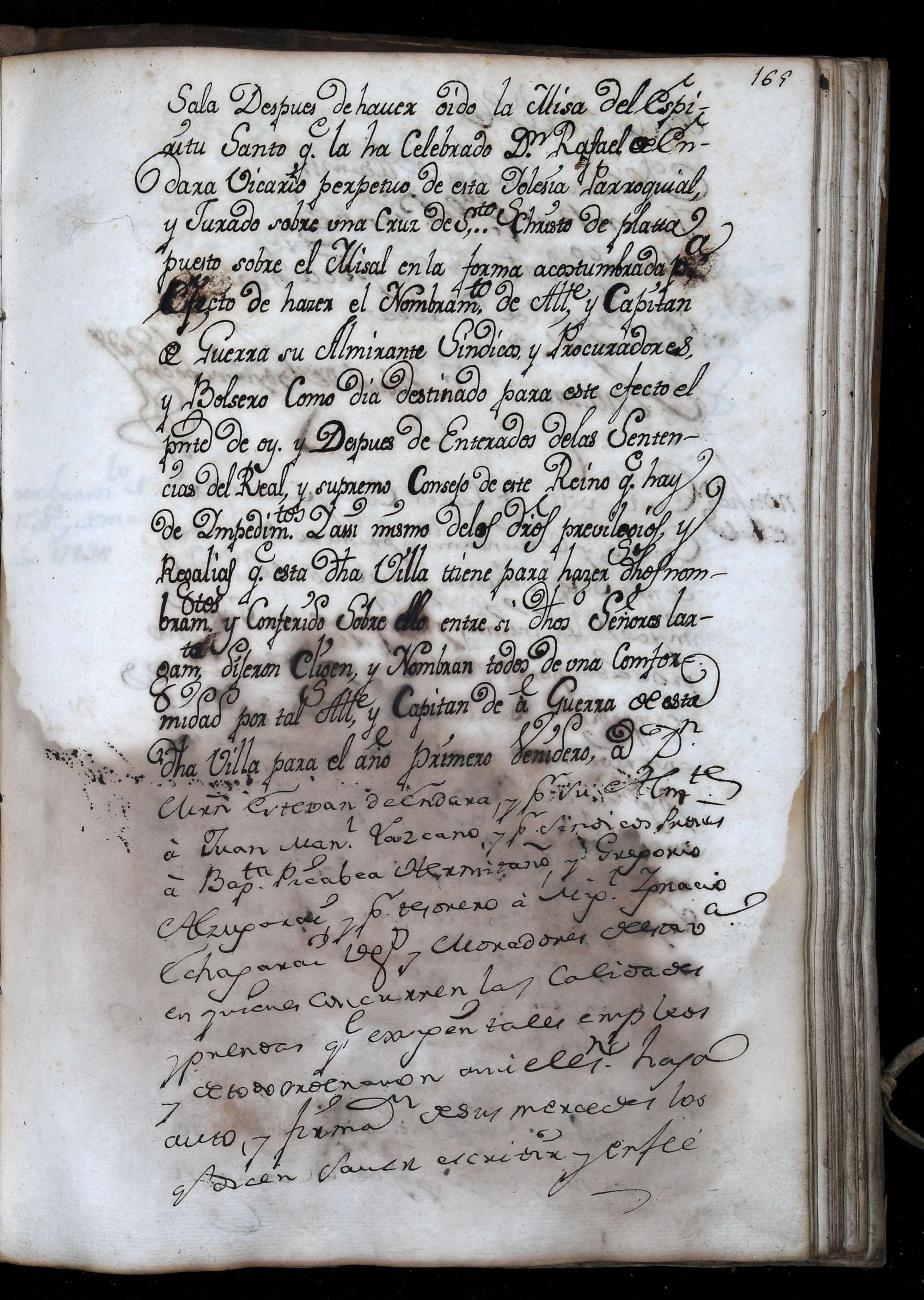 169
Sala Despues de haver oido la Misa del Espi-
ritu Santo q.e la ha Celebrado D.n Rafael de En-
dara Vicario perpetuo de esta Iglesia Parroquial,
y Jurado sobre una Cruz de S.to Christo de platta
puesto sobre el Misal en la forma acostumbrada p.a
Efecto de hacer el Nombram.to de Alle, y Capitan
de Guerra su Almirante Sindicos y Procuradores,
y Bolsero Como dia destinado para este efecto el
pnte de oy. y Despues de Enterados delas Senten-
cias del Real, y supremo Consejo de este Reino q.e hay
de Impedim.tos Y assi mismo delos dros previlegios, y
Regalias q.e esta dha Villa ttiene para hazer dhos nom-
bram.tos y Conferido Sobre ello entre si dhos Señores lar-
gam.te dijeron Elijen, y Nombran todos de una Confor-
midad por tal Alle, y Capitan de à Guerra de esta
dha Villa para el año primero Venidero, à D.n
Mrn Estevan de Endara, y p.r su Almte
à Juan Man.l Lazcano, y p.r Sindicos
à Bap.ta Picabea Hermitaño, y Gregorio
y p.r tesorero à Mig.l Ygnacio
y Moradores de esta v.a
en quienes concurren las Calidades
y prendas q.e exigen tales empleos
y de todo ordenaron a mi el es.no haga
auto, y firmaron de sus mercedes los
q.e dicen saven escrivir y en fee